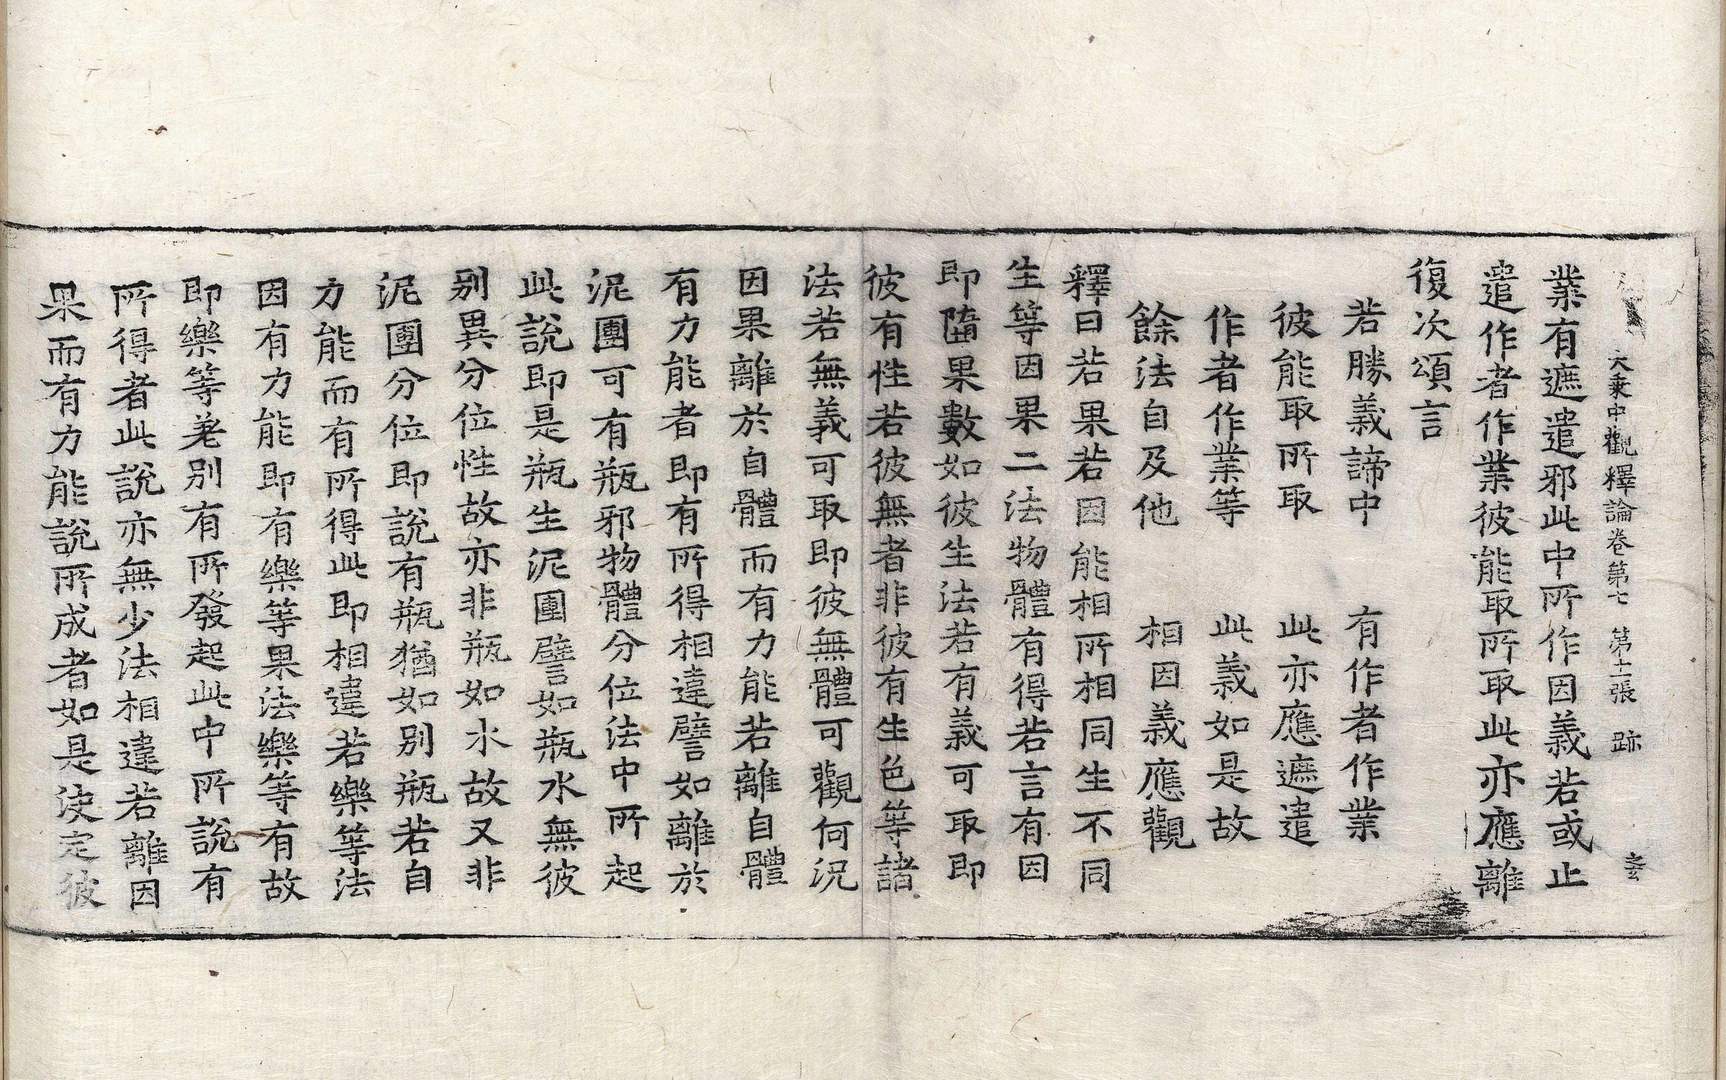 大乘中觀釋論卷第七 第十二張 跡
業有遮遣邪此中所作因義若或止
遣作者作業彼能取所取此亦應離
復次頌言
若勝義諦中 有作者作業
彼能取所取 此亦應遮遣
作者作業等 此義如是故
餘法自及他 相因義應觀
釋曰若果若因能相所相同生不同
生等因果二法物體有得若言有因
即墮果數如彼生法若有義可取即
彼有性若彼無者非彼有生色等諸
法若無義可取即彼無體可觀何況
因果離於自體而有力能若離自體
有力能者即有所得相違譬如離於
泥團可有瓶邪物體分位法中所起
此說即是瓶生泥團譬如瓶水無彼
別異分位性故亦非瓶如水故又非
泥團分位即說有瓶猶如別瓶若自
力能而有所得此即相違若樂等法
因有力能即有樂等果法樂等有故
即樂等差別有所發起此中所說有
所得者此說亦無少法相違若離因
果而有力能說所成者如是決定彼